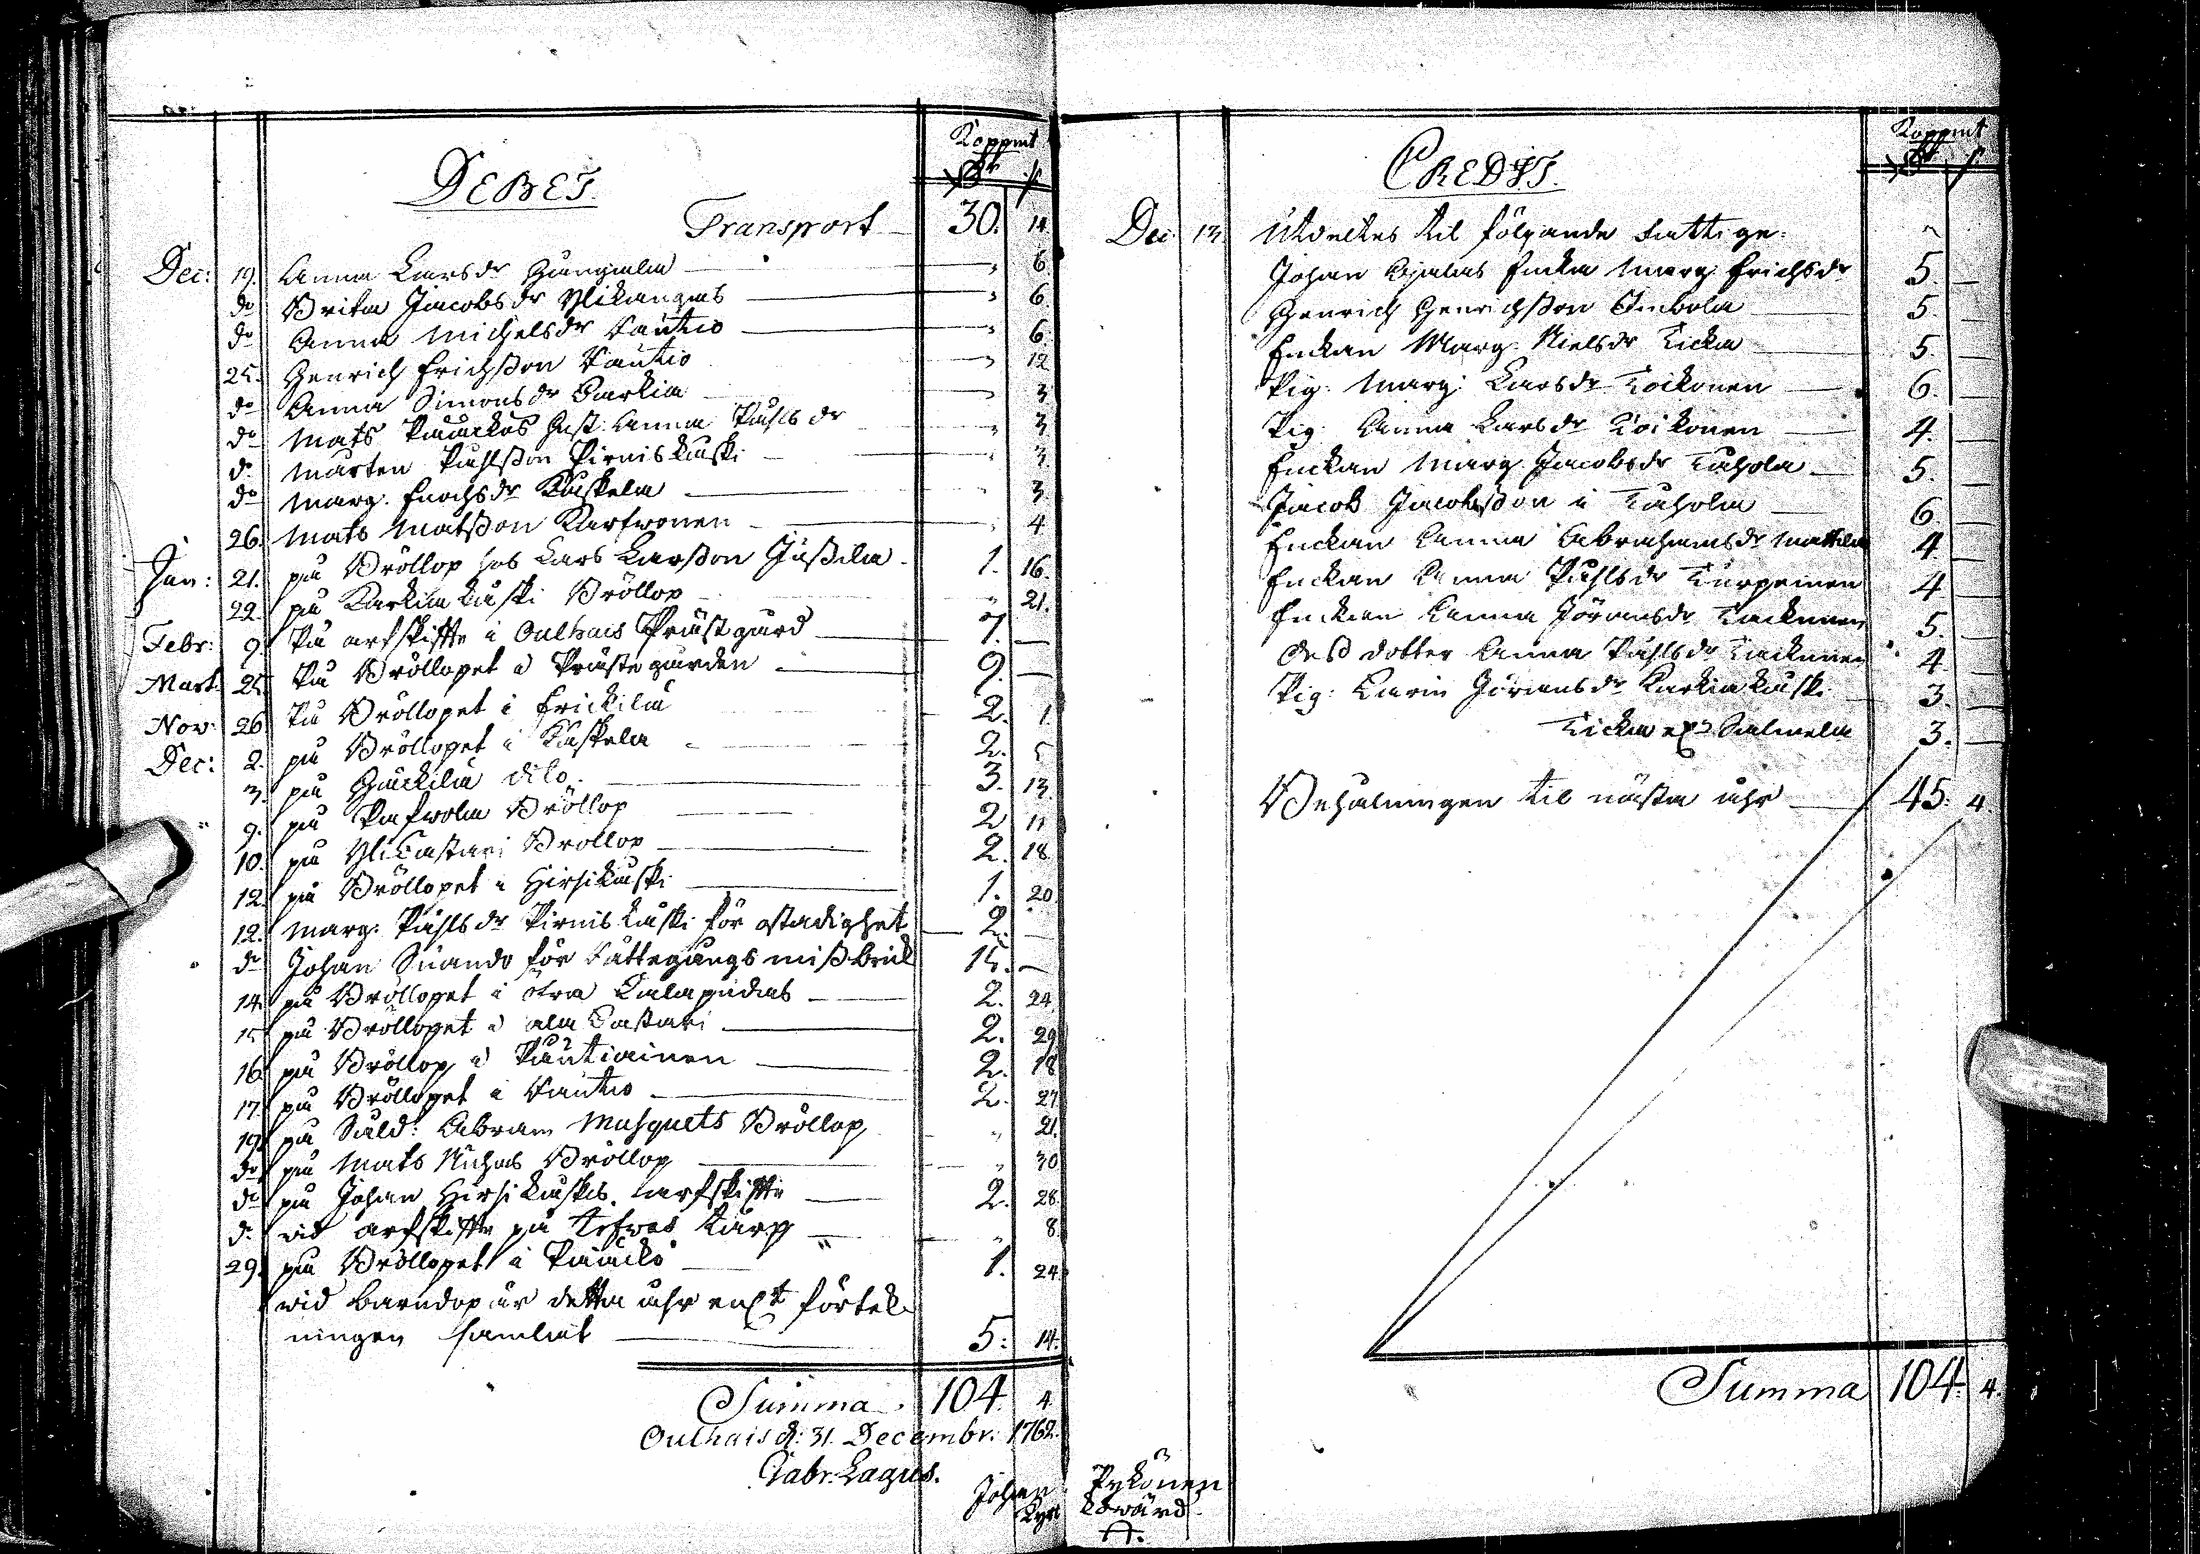 Koppmt
DEBET.
Transport 30. 14
Dec: 19. Anna Larsdr 6
do Brita Jacobsdr Ylikangas 6.
do Anna Michelsdr Cautio 6
25. Henrich Erichsson Cautio 12
do Anna Simonsdr Carkia 3
do Mats Paaickos Anna Påhlsdr 3
do Mårten Påhlsson Pirniskåski 3
do Marg. Enochsdr Kåskela 3
26. Mats Matsson Karfwonen 4
Jan: 21. på Bröllop hos Lars Larsson Jussila 1. 16.
22. på Karkiakåski Bröllop 21.
Febr: 9 På arfskifte i Oulhais Prästgård 7.
Mart: 25. På Bröllopet i Prästegården 9.
Nov: 26 På Bröllopet i Erickilä 2. 1.
Dec: 2. på Bröllopet i Kåskela 2. 5
3. på Häickilä dito 3. 13
9. på Pafwola Bröllop 2 11
10. på YliCastari Bröllop 2. 18
12 på Bröllopet i Hirsikåski 1. 20
12. Marg: Påhlsdr Pirniskåski för ostadighet 2.
do Johan Suando för Rättegångs missbruk 15.
14. på Bröllopet i öfra Calapudas 2. 24
15 på Bröllopet i ala Castari 2. 29
16 på Bröllop i Päntiäinen 2. 18
17 på Bröllopet i Cautio 2. 27
19 på Sald: Abram Musquets Bröllop 21.
do på Mats Bröllop 30
do på Johan Hirsikåskis arfskifte 2. 28
d. vid arfskifte på Kårp 8
29. på Bröllopet i Paaicko 1. 24
vid barndop är detta åhr enl:t förtek-
ningen samlat 5. 14.
Summa 104 4
Oulhais d: 31. Decembr: 1762.
Gabr. Lagus.
Johan Pykönen
Kyrkowärd
Koppmt
CREDIT.
Dec 13. Utdeltes til följande fattige:
Johan Ojalas Enka Marg: Erichsdr 5.
Henrich Henrichsson Simbola 5.
Enckan Marg: Nielsdr Ticka 5.
Pig: Marg: Larsdr Toikonen 6.
Pig: Anna Larsdr Toikonen 4.
Enckan Marg Jacobsdr Tuhola 5.
Jacob Jacobsson i Tuhola 6
Enckan Anna Abrahamsdr Mattila 4
Enckan Anna Påhlsdr Turpeinen 4
Enckan Anna Jöransdr Tackinen 5.
dess dotter Anna Påhlsdr Tackinen 4
Pig: Carin Jöransdr Karkiakåski 3.
Ticka Salmela 3.
Behålningen til nästa åhr 45. 4.
Summa 104. 4.